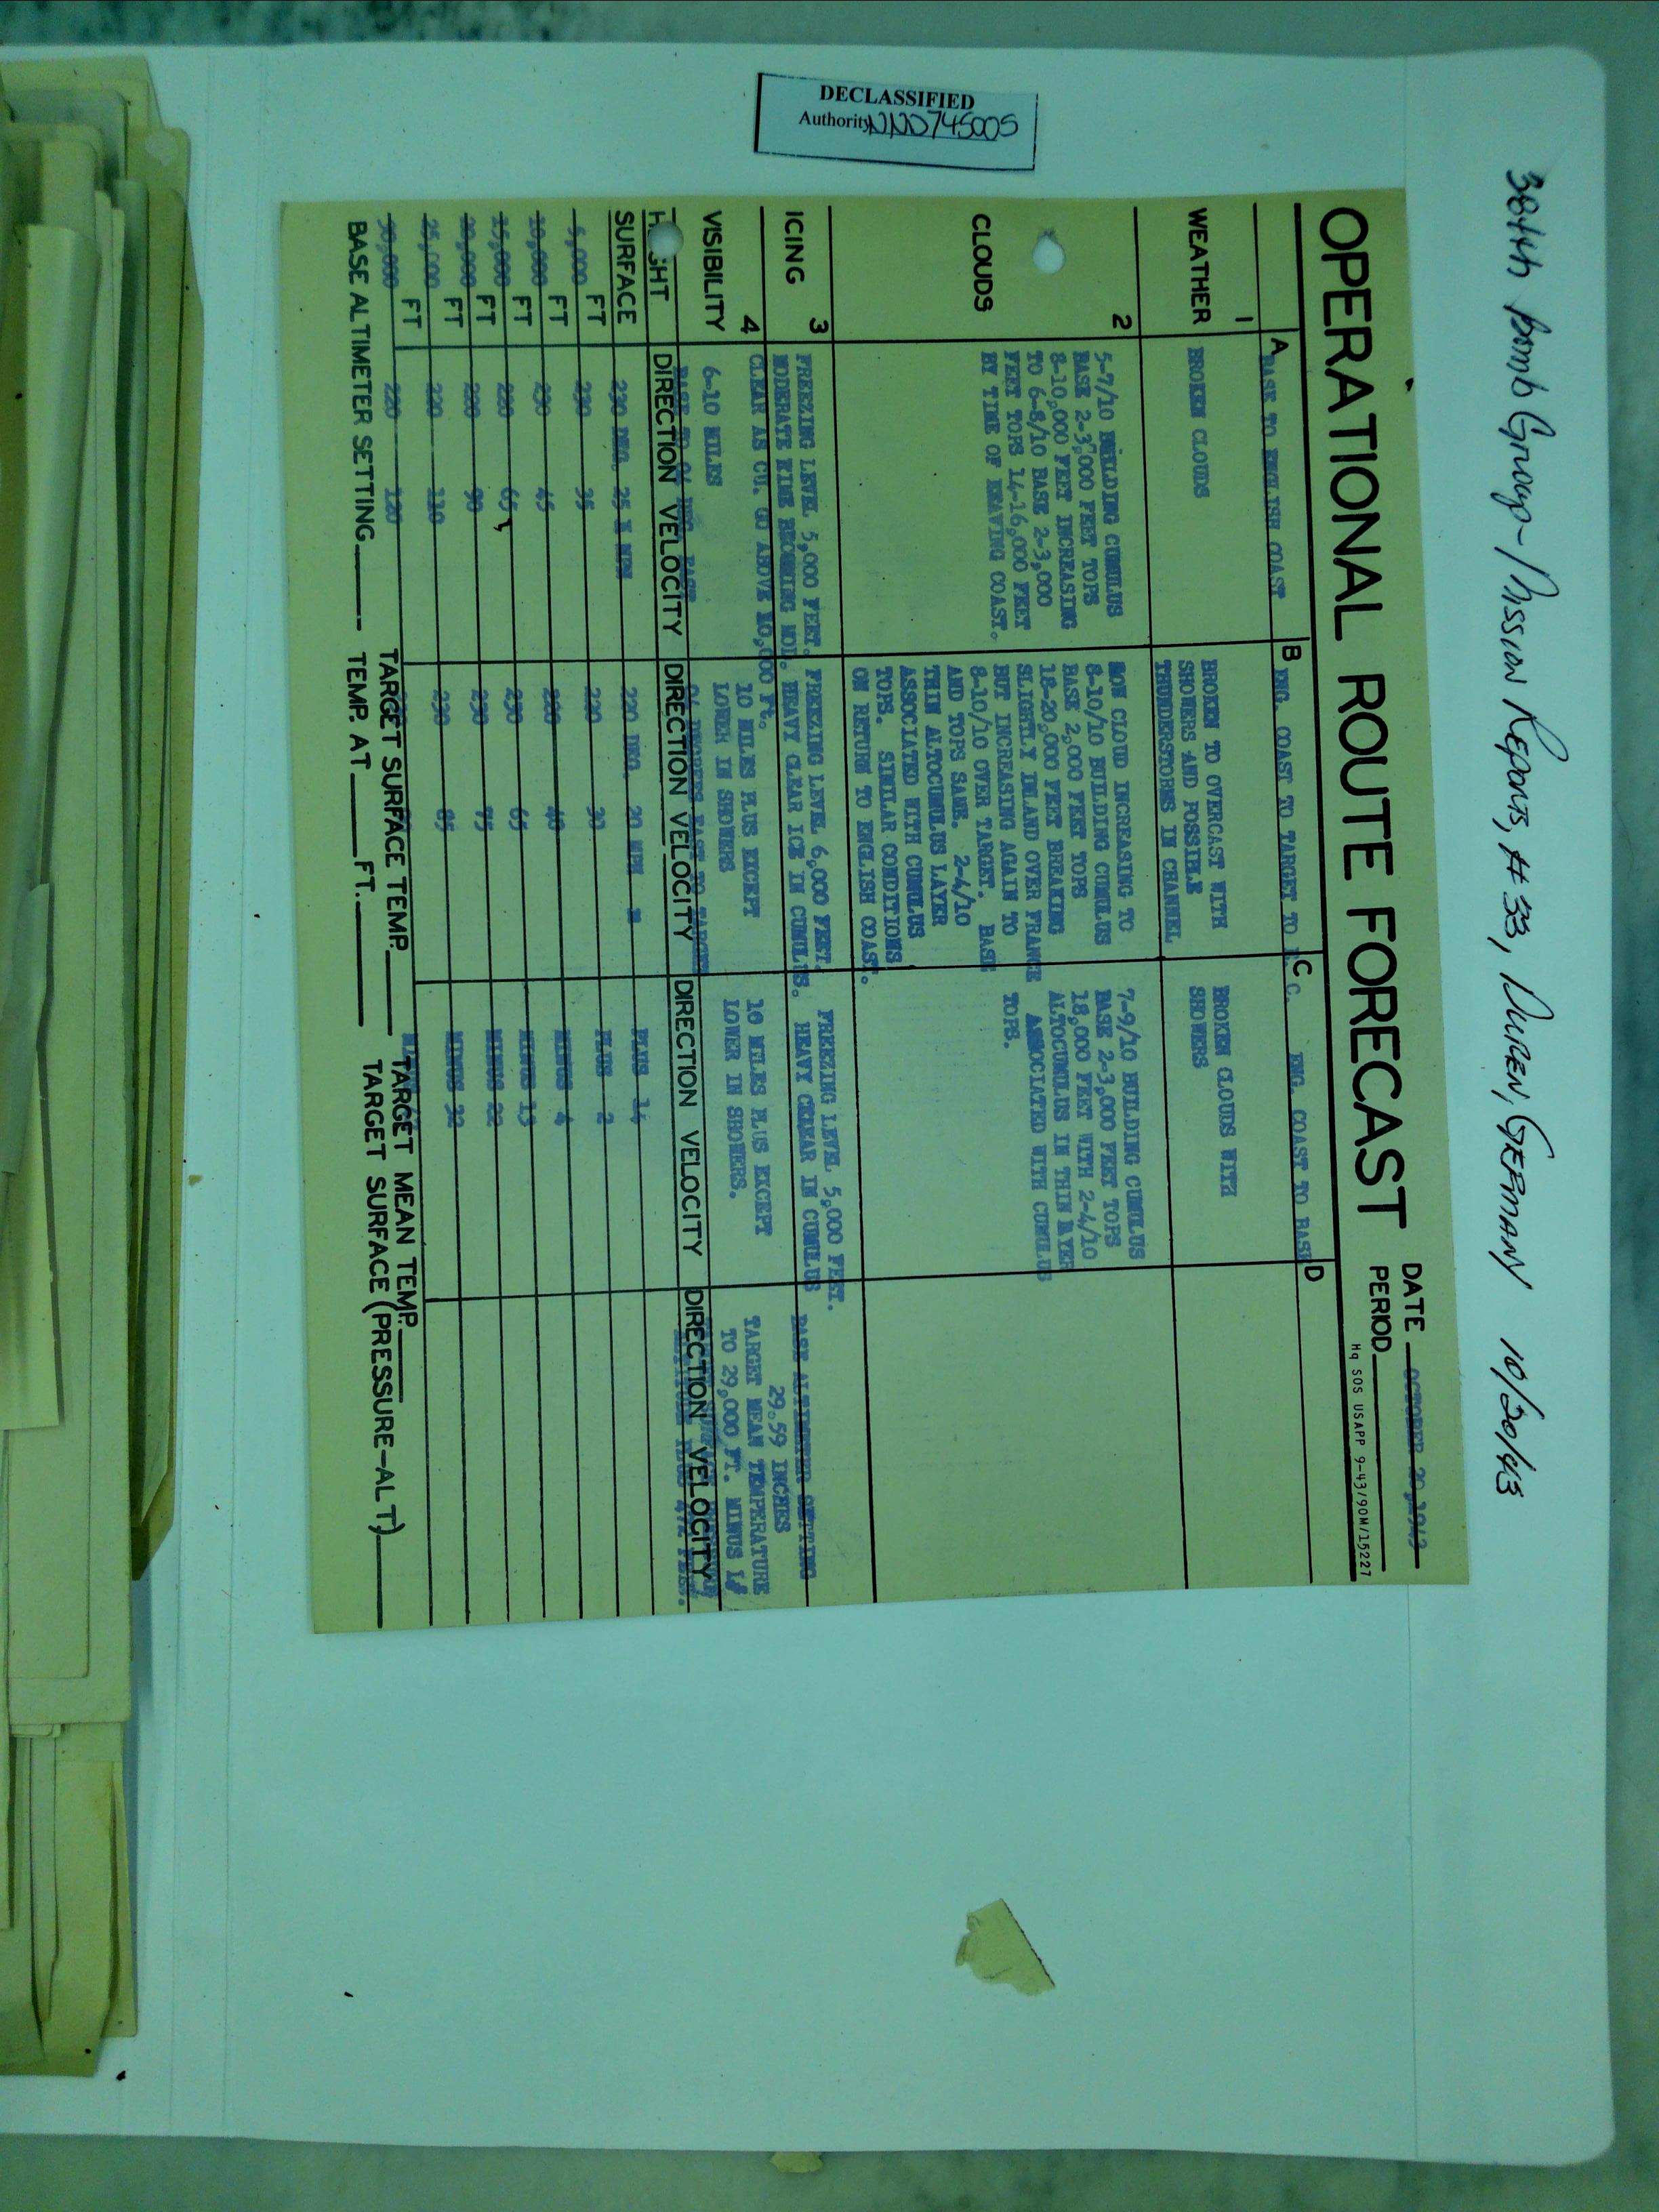 384th Bomb Group - Mission Reports, #33, Duren, German 10/20/43
DECLASSIFIED
Authority NND745005
OPERATIONAL ROUTE FORECAST
DATE OCTOBER 20, 1943
PERIOD
Hq SOS USAPP 9-43/90M/15227
A BASE TO ENGLISH COAST
B ENG. COAST TO TARGET TO E.C.
C ENG. COAST TO BASE
D
1
WEATHER
BROKEN CLOUDS
BROKEN TO OVERCAST WITH
SHOWERS AND POSSIBLE
THUNDERSTORMS IN CHANNEL
BROKEN CLOUDS WITH
SHOWERS
2
CLOUDS
5-7/10 BUILDING CUMULUS
BASE 2-3,000 FEET TOPS
8-10,000 FEET INCREASING
TO 6-8/10 BASE 2-3,000
FEET TOPS 14-16,000 FEET
BY TIME OF LEAVING COAST.
CLOUD INCREASING TO
8-10/10 BUILDING CUMULUS
BASE 2,000 FEET TOPS
18-20,000 FEET BREAKING
SLIGHTLY INLAND OVER FRANCE
BUT INCREASING AGAIN TO
8-10/10 OVER TARGET. BASE
AND TOPS SAME. 2-4/10
THIN ALTOCUMULUS LAYER
ASSOCIATED WITH CUMULUS
TOPS. SIMILAR CONDITIONS
ON RETURN TO ENGLISH COAST.
7-9/10 BUILDING CUMULUS
BASE 2-3,000 FEET TOPS
18,000 FEET WITH 2-4/10
ALTOCUMULUS IN THIN LAYER
ASSOCIATED WITH CUMULUS
TOPS.
3
ICING
FREEZING LEVEL 5,000 FEET.
MODERATE RIME BECOMING MOD.
CLEAR AS CU. GO ABOVE 10,000 Ft.
FREEZING LEVEL 6,000 FEET.
HEAVY CLEAR ICE IN CUMULUS.
FREEZING LEVEL 5,000 FEET.
HEAVY CLEAR IN CUMULUS
BASE ALTIMETER SETTING
29.59 INCHES
TARGET MEAN TEMPERATURE
TO 29,000 FT. MINUS
4
VISIBILITY
6-10 MILES
10 MILES PLUS EXCEPT
LOWER IN SHOWERS
10 MILES PLUS EXCEPT
LOWER IN SHOWERS.
DIRECTION VELOCITY DIRECTION VELOCITY DIRECTION VELOCITY DIRECTION VELOCITY
SURFACE 230 DEG. 25 MPH 220 DEG. 20 MPH PLUS 14
5,000 FT 230 35 220 30 PLUS 2
10,000 FT 230 45 220 40 MINUS 4
15,000 FT 220 65 230 65 MINUS 13
20,000 FT 220 90 230 75 MINUS 22
25,000 FT 220 110 230 85 MINUS 32
30,000 FT 220 120
BASE ALTIMETER SETTING
TEMP. AT FT.
TARGET SURFACE TEMP.
TARGET MEAN TEMP.
TARGET SURFACE (PRESSURE-ALT)